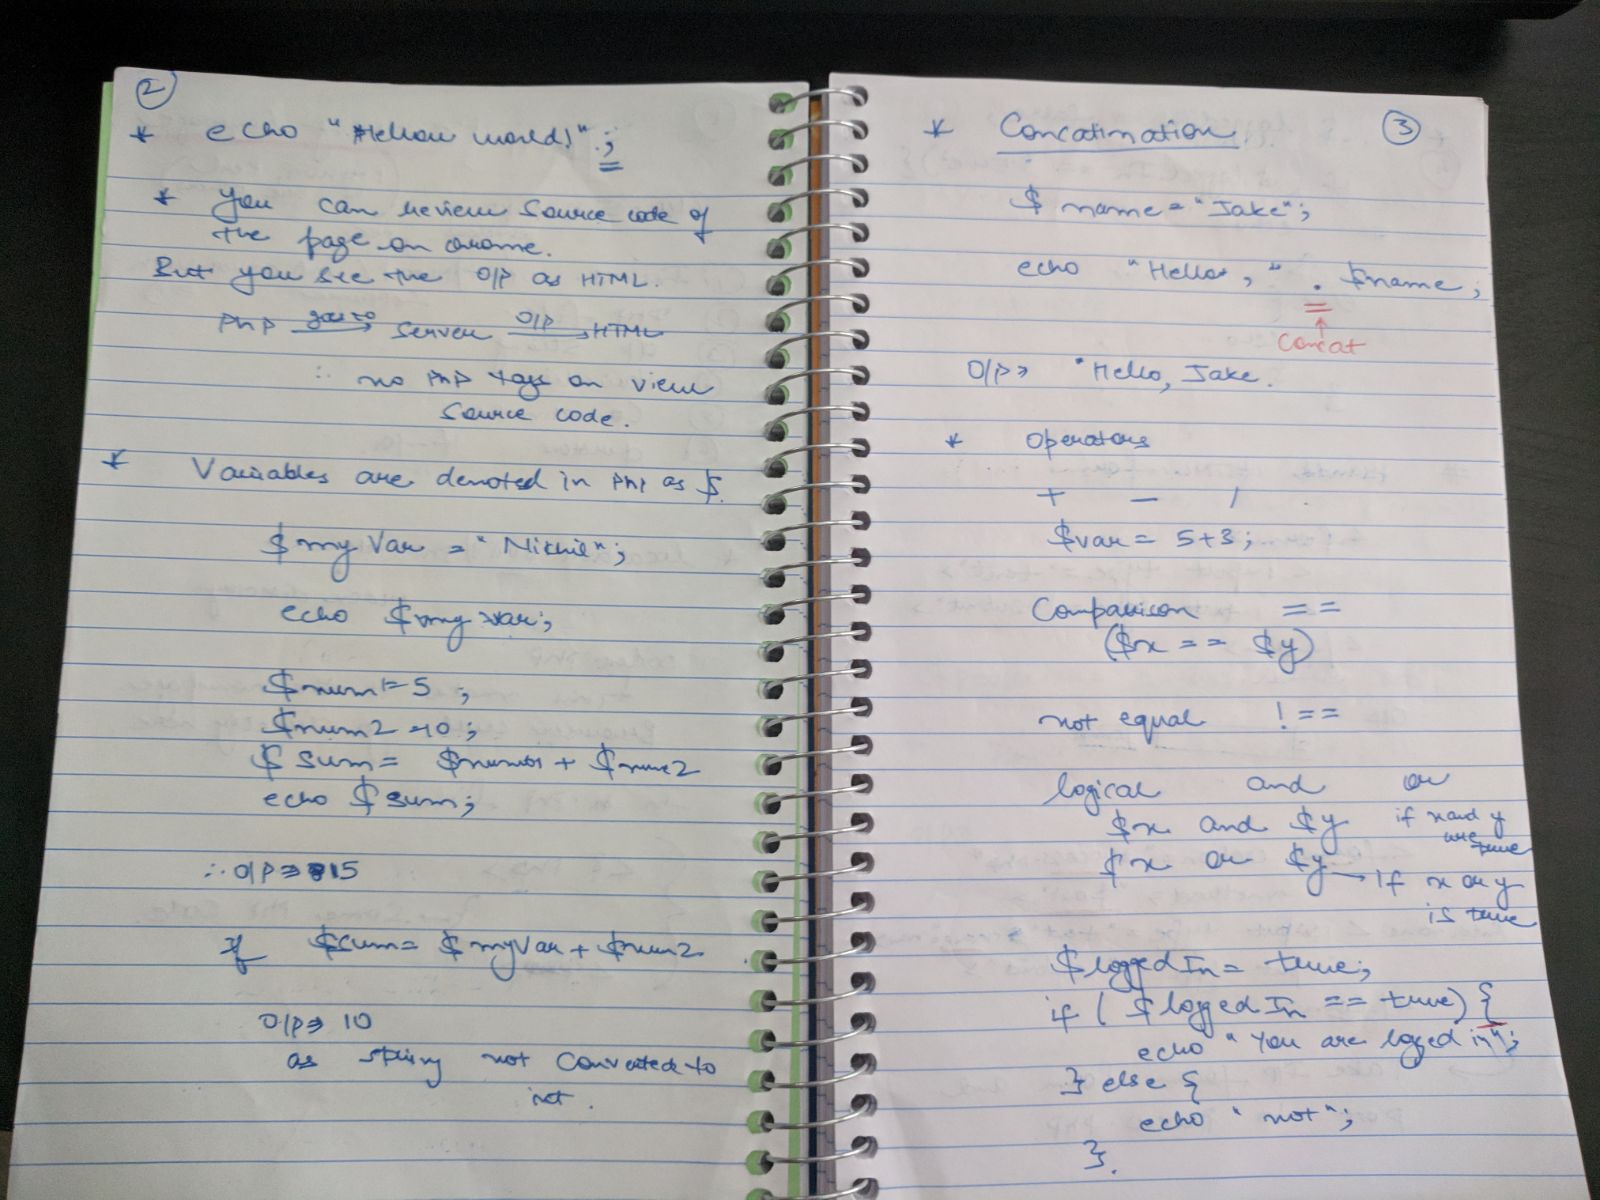 2
* echo "Hellow world!";
* You can review source code of
the page on chrome.
But you see the O/P as HTML.
PHP goes to Server O/P HTML
∴ no PHP tags on view
source code.
* Variables are denoted in PHP as $.
$myVar = "Nikhil";
echo $myvar;
$num1=5 ;
$num2=10;
$ sum= $num1 + $num2
echo $sum;
∴ O/P⇒ 15
If $sum= $myVar + $num2
O/P⇒ 10
as string not converted to
int.
3
* Concatination
$ name="Jake";
echo "Hello, " . $name;
Concat
O/P⇒ "Hello, Jake.
* Operators
+ - /
$var= 5+3;
Comparison ==
($x == $y)
not equal !==
logical and or
$x and $y if x and y
are true
$x or $y → If x or y
is true
$loggedIn= true;
if ( $loggedIn == true) {
echo "You are logged in";
} else {
echo "not";
}.